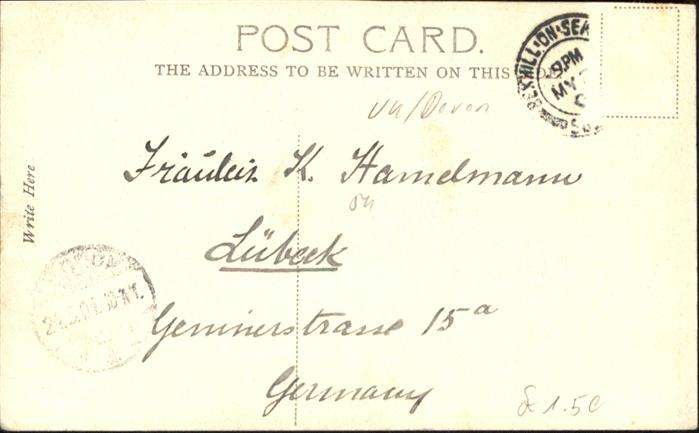 POST CARD.
THE ADDRESS TO BE WRITTEN ON THIS
BEXHILL-ON-SEA
9.PM
MY
un/Devon
Write Here
Fräulein K. Hamelmann
Lübeck
15a
Germany
£1.50